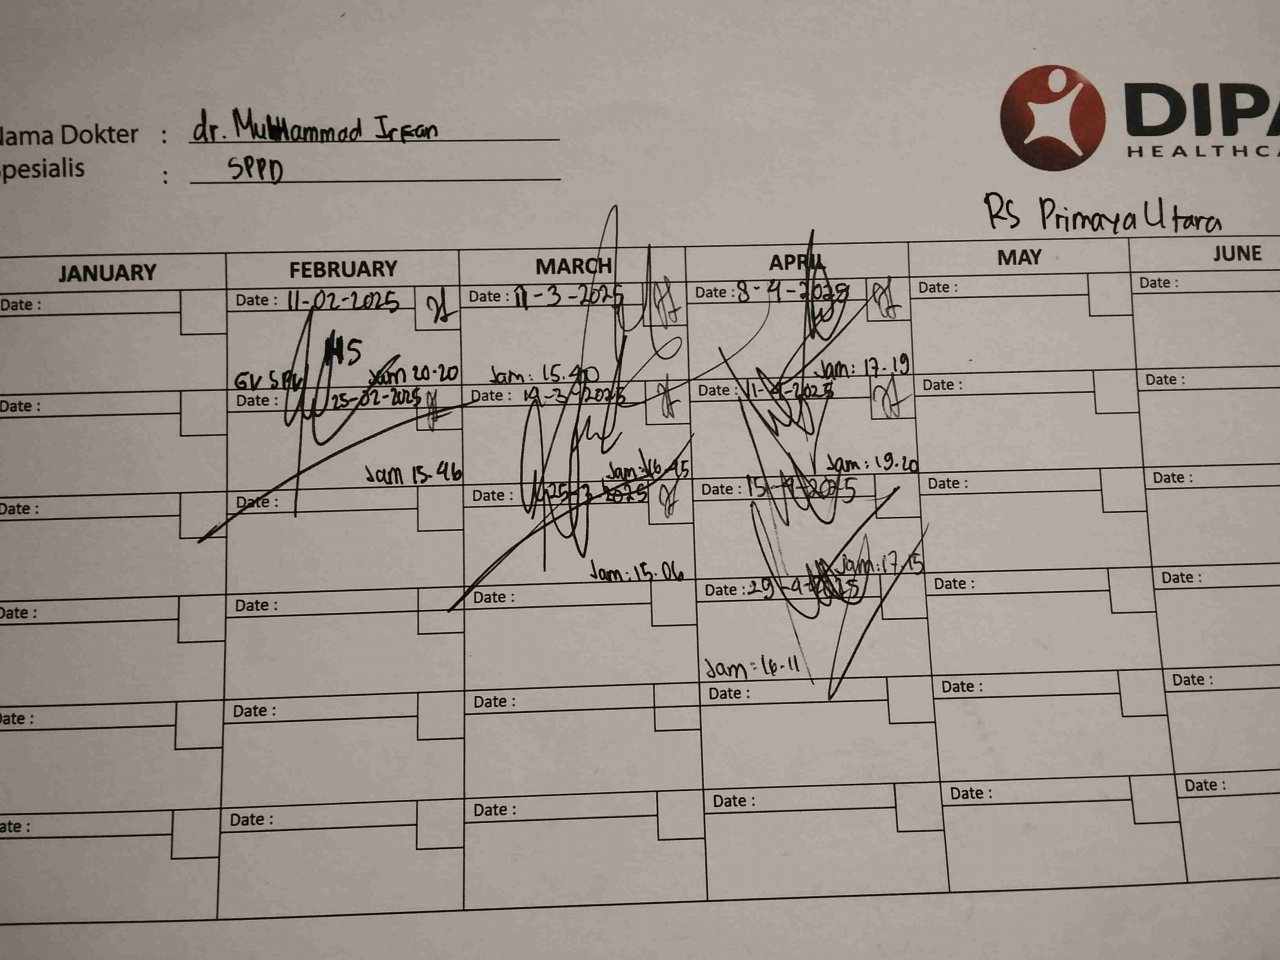 Nama Dokter : dr. Muhammad Irfan
Spesialis : SPPD
DIPA
HEALTHCA
RS Primaya Utara
JANUARY FEBRUARY MARCH APRIL MAY JUNE
Date : Date : 11-02-2025 Date : 11-3-2025 Date : 8-4-2025 Date : Date :
Jam 20-20 Jam: 15.40 Jam: 17-19
Date : Date : 25-02-2025 Date : Date : 11-4-2025 Date : Date :
Jam 15-46 Jam: 16-45 Jam: 19.20
Date : Date : Date : 25-3-2025 Date : 15-4-2025 Date : Date :
Jam: 15.06 Jam: 17.15
Date : Date : Date : Date : 29-4-2025 Date : Date :
Jam: 16-11
Date : Date : Date : Date : Date : Date :
Date : Date : Date : Date : Date : Date :